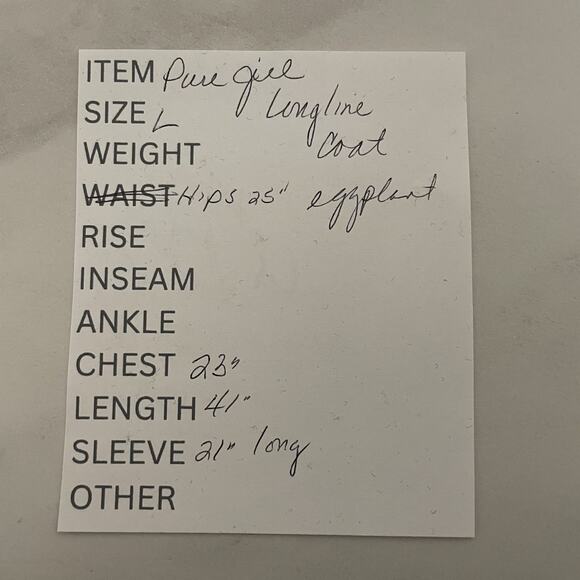 ITEM Pure jill
SIZE L Longline
WEIGHT Coat
WAIST Hips 25" eggplant
RISE
INSEAM
ANKLE
CHEST 23"
LENGTH 41"
SLEEVE 21" long
OTHER